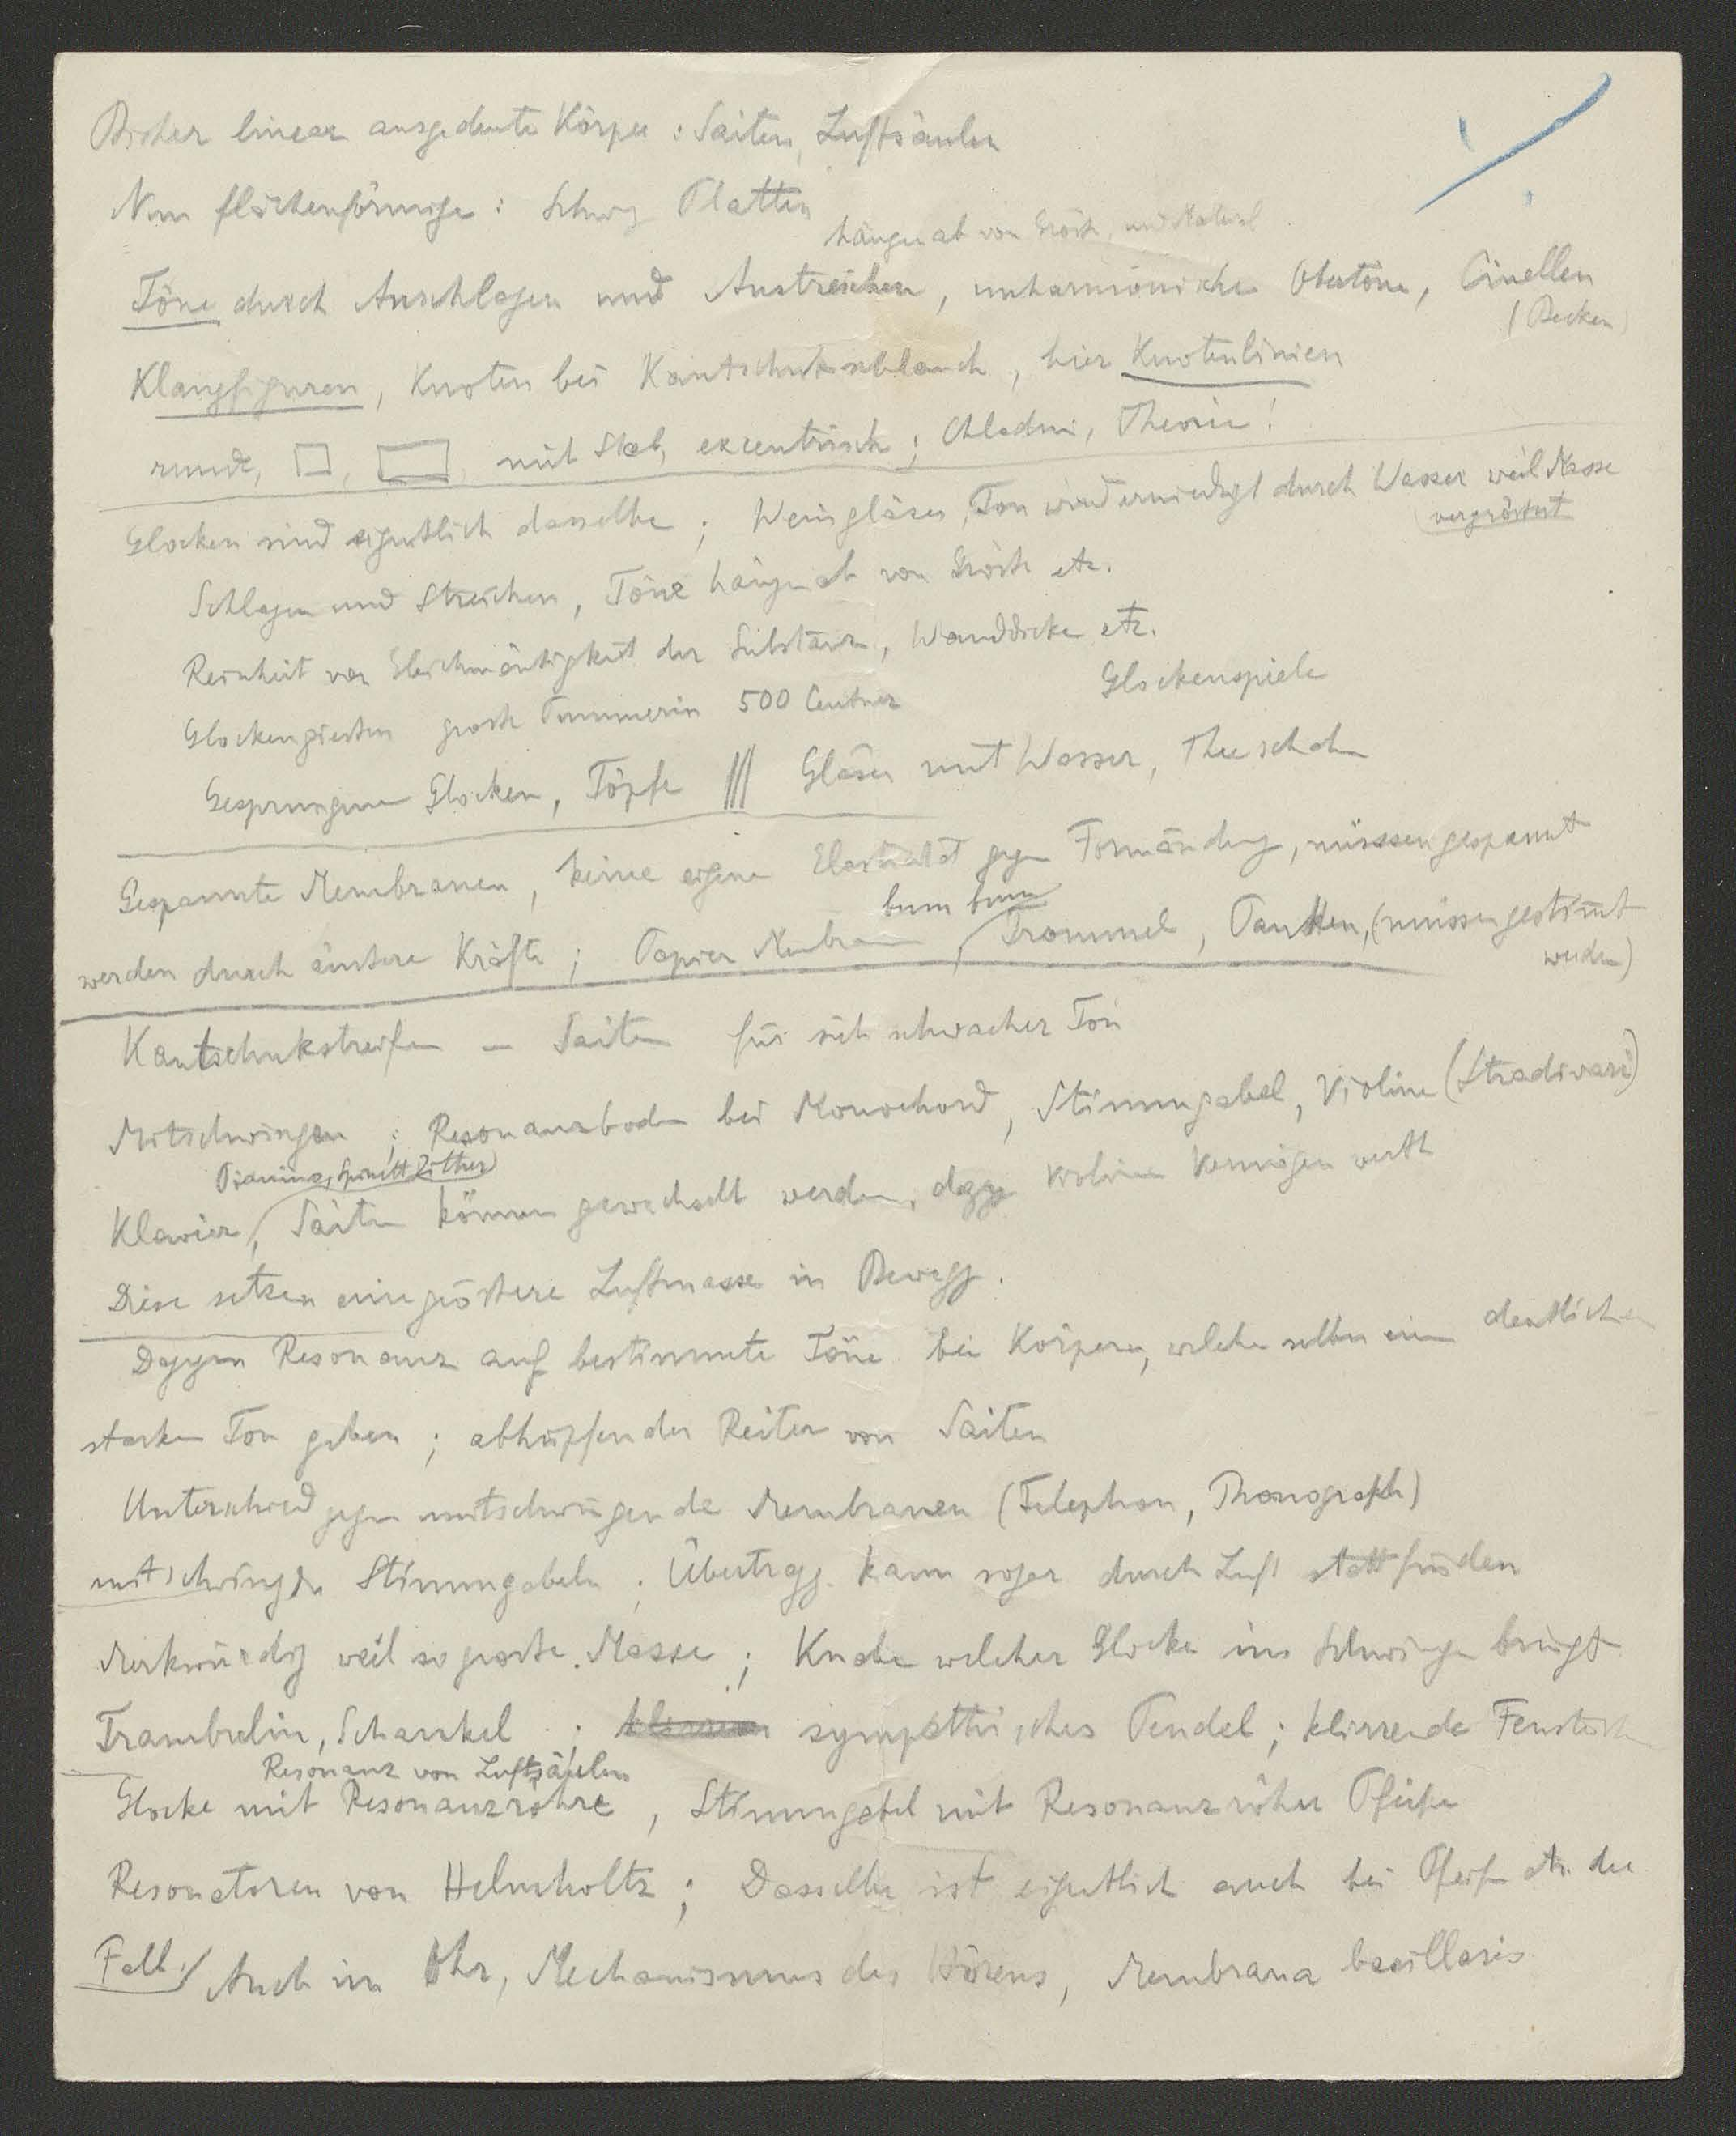 Bisher linear ausgedente Körper : Saiten, Luftsäulen
Nun flächenförmige : Schwg Platten
hängen ab von Grösse, und Material
Töne durch Anschlagen und Anstreichen, unharmonische Obertöne, Cinellen
(Becken)
Klangfiguren, Knoten bei Kautschukschlauch, hier Knotenlinien
runde, □, ▭, mit Stab, excentrisch ; Chladni, Theorie !
Glocken sind eigentlich dasselbe ; Weingläser, Ton wird erniedrigt durch Wasser weil Masse
vergrössert
Schlagen und Streichen, Töne hängen ab von Grösse etc.
Reinheit von Gleichmässigkeit der Substanz, Wanddicke etc.
Glockengiessen grosse Pummerin 500 Centner Glockenspiele
Gesprungene Glocken, Töpfe /// Gläser mit Wasser, Theeschalen
Gespannte Membranen, keine eigene Elasticität gegen Formänderg, müsssen gespannt
bum bum
werden durch äussere Kräfte ; Papier Membran, Trommel, Pauken, (müssen gestimt
werden)
Kautschukstreifen – Saiten für sich schwacher Ton
Mitschwingen ; Resonanzboden bei Monochord, Stimmgabel, Violine (Stradivari)
Pianino, Spinett Zither
Klavier, Saiten können gewechselt werden, dagg Violine Vermögen werth
Diese setzen eine grössere Luftmasse in Bewegg.
Daggen Resonanz auf bestimmte Töne bei Körpern, welche selber einen deutlichen
starken Ton geben ; abhüpfender Reiter von Saiten
Unterschied gegen mitschwingende Membranen (Telephon, Phonograph)
mitschwingde Stimmgabeln ; Übertragg. kann sogar durch Luft stattfinden
Merkwürdig weil so grosse Masse ; Knabe welcher Glocke ins Schwingen bringt
Trambulin, Schaukel ; klirren sympathisches Pendel ; klirrende Fenster
Resonanz von Luftsäulen
Glocke mit Resonanzröhre, Stimmgabel mit Resonanzröhre Pfeife
Resonatoren von Helmholtz ; Dasselbe ist eigentlich auch bei Pfeifen etc. der
Fall. / Auch im Ohr, Mechanismus des Hörens, Membrana basillaris